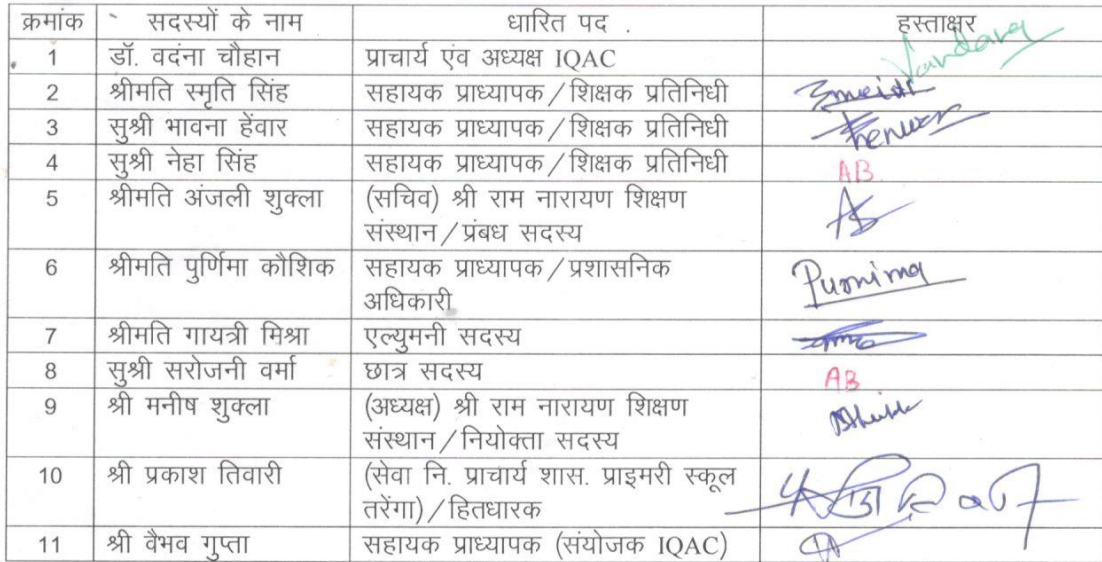 क्रमांक सदस्यों के नाम धारित पद . हस्ताक्षर
1 डॉ. वदंना चौहान प्राचार्य एंव अध्यक्ष IQAC Vandana
2 श्रीमति स्मृति सिंह सहायक प्राध्यापक/शिक्षक प्रतिनिधी
3 सुश्री भावना हेंवार सहायक प्राध्यापक/शिक्षक प्रतिनिधी
4 सुश्री नेहा सिंह सहायक प्राध्यापक/शिक्षक प्रतिनिधी AB
5 श्रीमति अंजली शुक्ला (सचिव) श्री राम नारायण शिक्षण
संस्थान/प्रंबध सदस्य
6 श्रीमति पुर्णिमा कौशिक सहायक प्राध्यापक/प्रशासनिक Purnima
अधिकारी
7 श्रीमति गायत्री मिश्रा एल्युमनी सदस्य
8 सुश्री सरोजनी वर्मा छात्र सदस्य AB
9 श्री मनीष शुक्ला (अध्यक्ष) श्री राम नारायण शिक्षण
संस्थान/नियोक्ता सदस्य
10 श्री प्रकाश तिवारी (सेवा नि. प्राचार्य शास. प्राइमरी स्कूल
तरेंगा)/हितधारक
11 श्री वैभव गुप्ता सहायक प्राध्यापक (संयोजक IQAC)